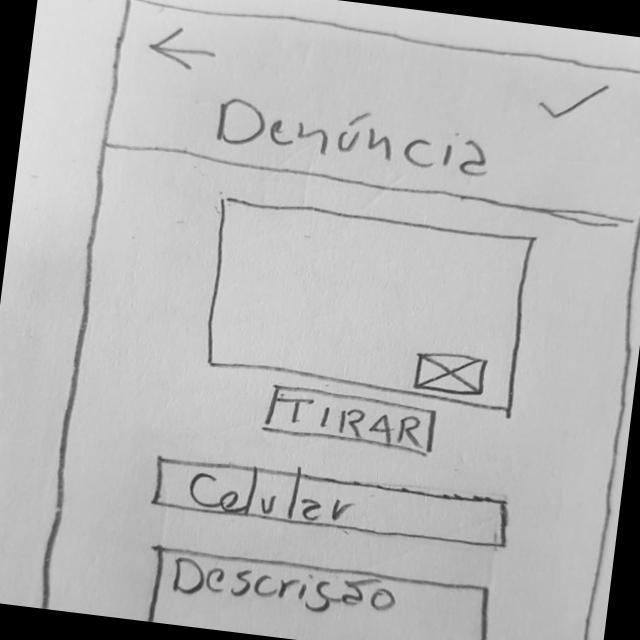 Denúncia
TIRAR
Celular
Descrisão